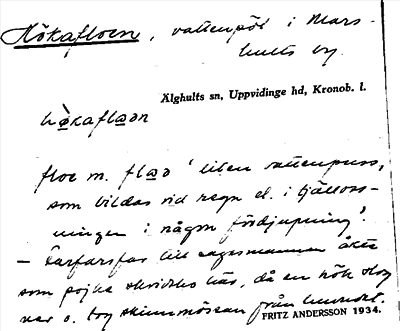 Hökafloen, vattenpöl i Mars-
hults by.
Älghults sn, Uppvidinge hd, Kronob. l.
floe m. 'liten vattenpuss,
som bildas vid regn el. i tjälloss-
ningen i någon fördjupning'.
— Farfarsfar till sagesmannen åkte
som pojke skridsko där, då en hök slog
ner o. tog skinnmössan från huvudet.
FRITZ ANDERSSON 1934.